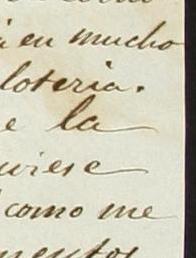 en mucho
loteria.
la
uviese
como me
mentos